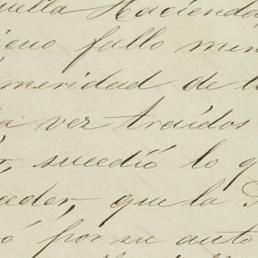 uella Hacienda
fallo
meridad de l
a vez traidos
, sucedió lo q
eder, que la
ó por su auto